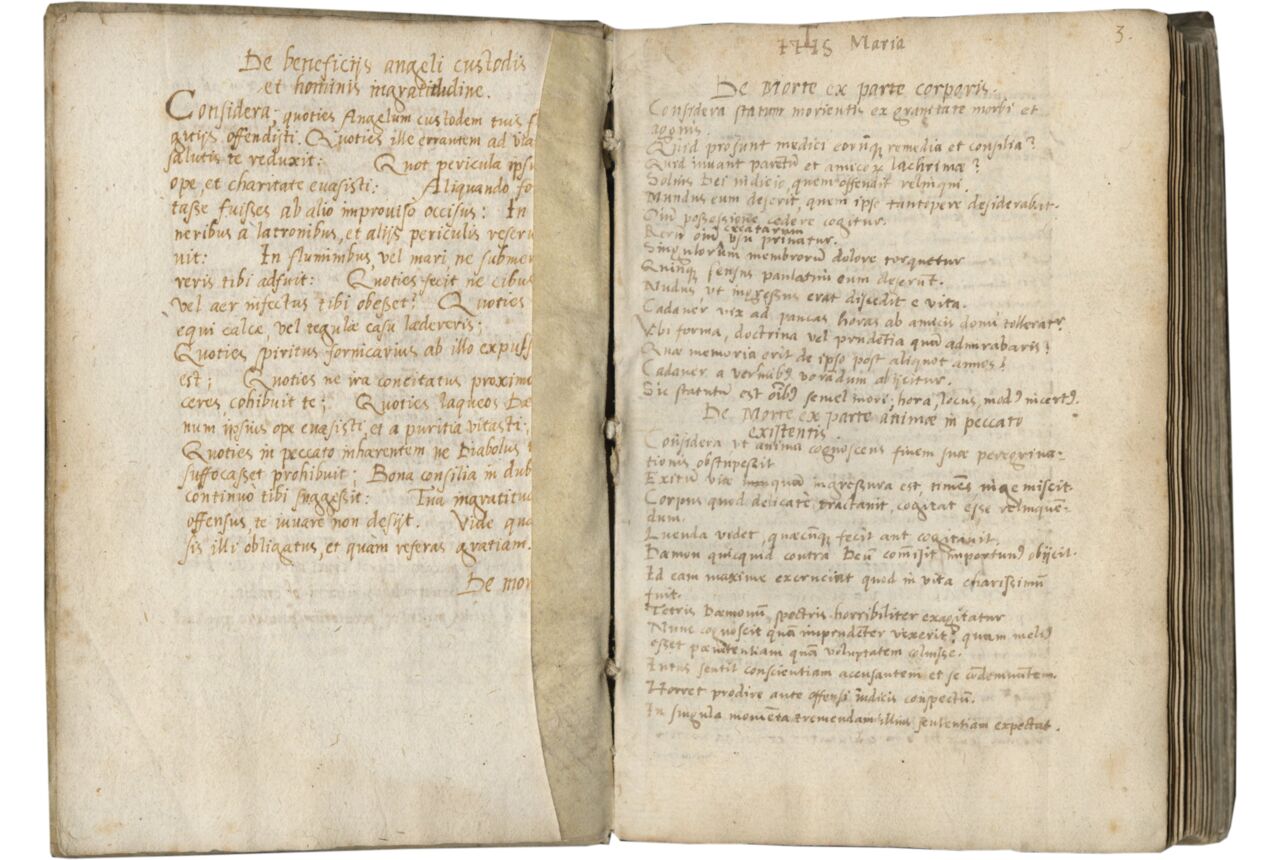 De beneficijs angeli custodis
et hominis ingratitudine.
Considera; quoties Angelum custodem tuis f
gitijs offendisti. Quoties ille errantem ad via
salutis te reduxit: Quot pericula ipsi
ope, et charitate euasisti: Aliquando for
tasse fuisses ab alio improuiso occisus: In
neribus a latronibus, et alijs periculis reseru
uit: In fluminibus, vel mari ne submer
reris tibi adfuit: Quoties fecit ne cibus
vel aer infectus tibi obesset? Quoties
equi calce, vel tegulæ casu lædereris;
Quoties spiritus fornicarius ab illo expuls
est; Quoties ne ira concitatus proximo
ceres cohibuit te; Quoties laqueos Dæ
num ipsius ope euasisti, et a puritia vitasti;
Quoties in peccato inhærentem ne Diabolus
suffocasset prohibuit; Bona consilia in dub
continuo tibi suggessit: Tua ingratitud
offensus, te iuuare non desijt. Vide qua
sis illi obligatus, et quàm referas gratiam.
De mor
IHS Maria
3.
De Morte ex parte corporis.
Considera statum morientis ex grauitate morbi et
agonis.
Quid prosunt medici eorũq; remedia et consilia?
Quid iuuant parentũ et amicorꝝ lachrimæ?
Solius Dei iudicio, quem offendit relinqui.
Mundus eum deserit, quem ipse tantopere desiderabit.
Oĩũ possessione cedere cogitur.
Rerũ oĩũ creatarum vsu priuatur.
Singulorum membrorũ dolore torquetur
Quinq; sensus paulatim eum deserũt.
Nudus, vt ingressus erat discedit e vita.
Cadauer vix ad paucas horas ab amicis domi tolleratr.
Vbi forma, doctrina vel prudẽtia quã admirabaris?
Quæ memoria erit de ipso post aliquot annos?
Cadauer a vermibꝰ vorãdum abijcitur.
Sic statutũ est oĩbꝰ semel mori; hora, locus, modꝰ incertꝰ.
De Morte ex parte animæ in peccato
existentis.
Considera, vt anima cognoscens finem suæ peregrina-
tionis obstupescit
Exitũ viæ ingressura est, timẽs
Corpus quod delicatè tractauit, cogitat esse relinquẽ-
dum.
Luenda videt, quæcũq; fecit aut cogitauit.
Dæmon quicquid contra Deũ commisit importunꝰ obijcit.
Id eam maxime excruciat quod in vita charissimũ
fuit.
Tetris Dæmonũ spectris horribiliter exagitatur
Nunc cognoscit quã imprudẽter vixerit? quam meliꝰ
esset pænitentiam quã voluptatem coluisse.
Intus sentit conscientiam accusantem et se cõdemnantem.
Horret prodire ante offensi iudicis conspectũ.
In singula momẽta tremendam illius sententiam expectat.